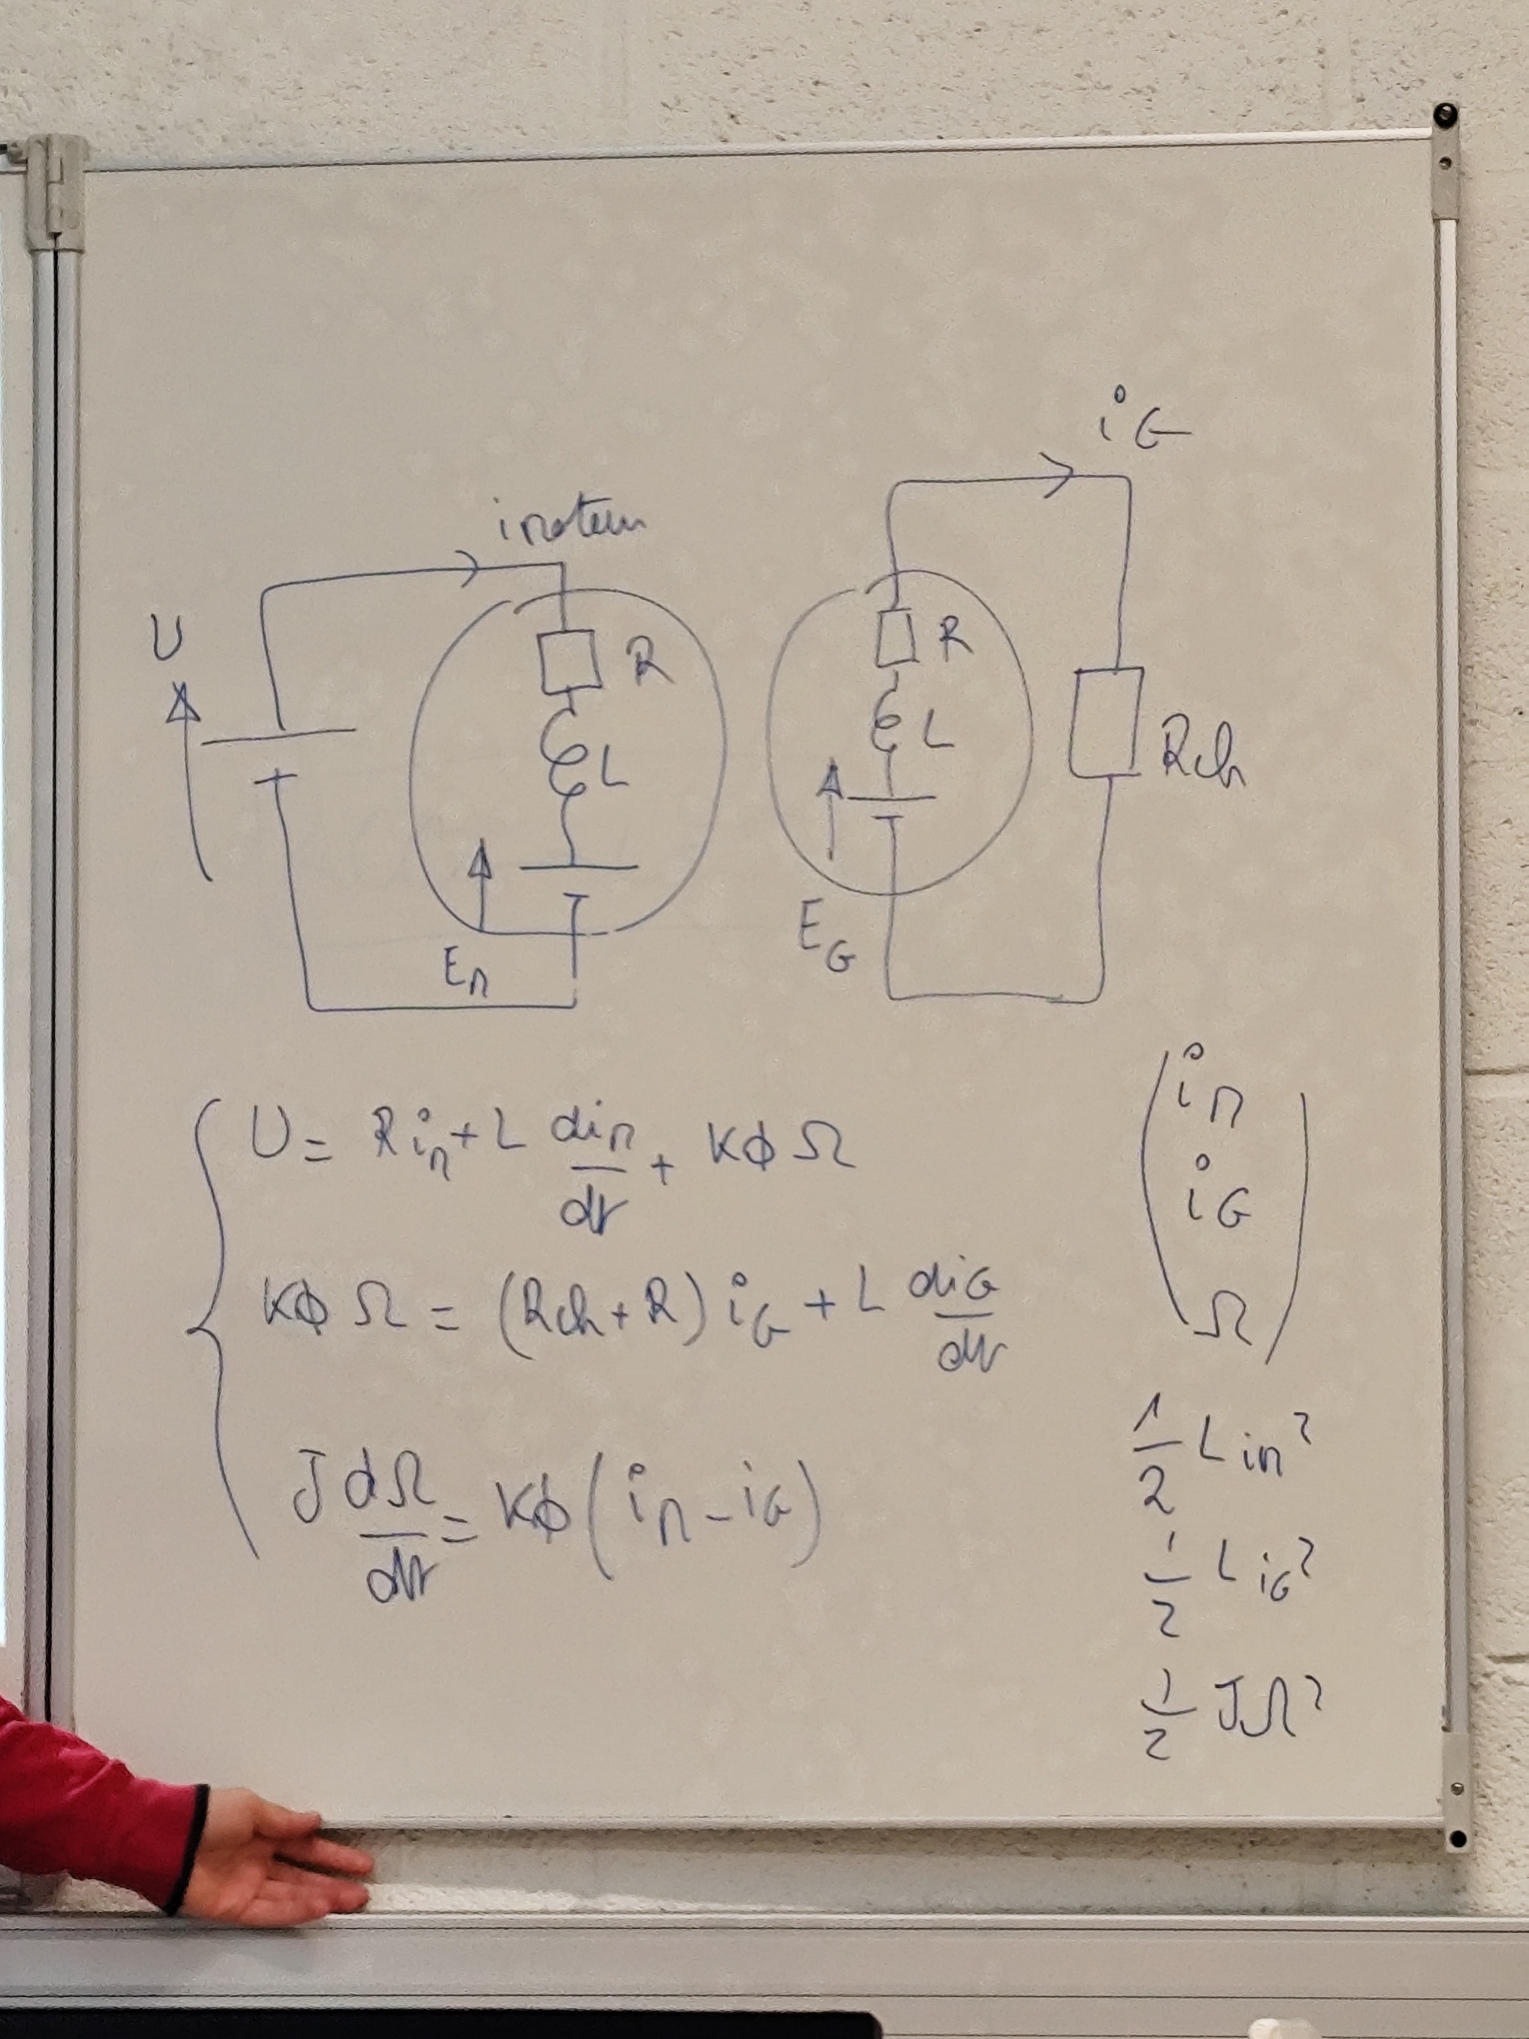 iG
imoteur
U
R
L
EM
R
L
EG
Rch
U = R iM + L diM/dt + KΦ Ω
KΦ Ω = (Rch + R) iG + L diG/dt
J dΩ/dt = KΦ (iM - iG)
iM
iG
Ω
1/2 L iM²
1/2 L iG²
1/2 JΩ²